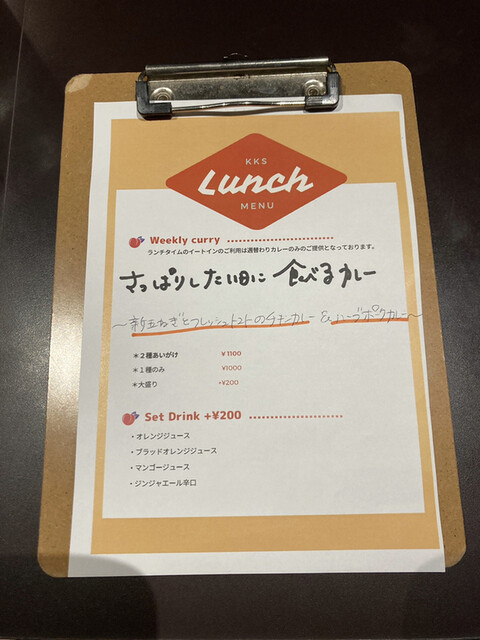 KKS
Lunch
MENU
Weekly curry
ランチタイムのイートインのご利用は週替わりカレーのみのご提供となっております。
さっぱりしたい日に 食べるカレー
〜新玉ねぎとフレッシュトマトのチキンカレー & ハーブポークカレー〜
＊2種あいがけ ¥1100
＊1種のみ ¥1000
＊大盛り +¥200
Set Drink +¥200
・オレンジジュース
・ブラッドオレンジジュース
・マンゴージュース
・ジンジャエール辛口